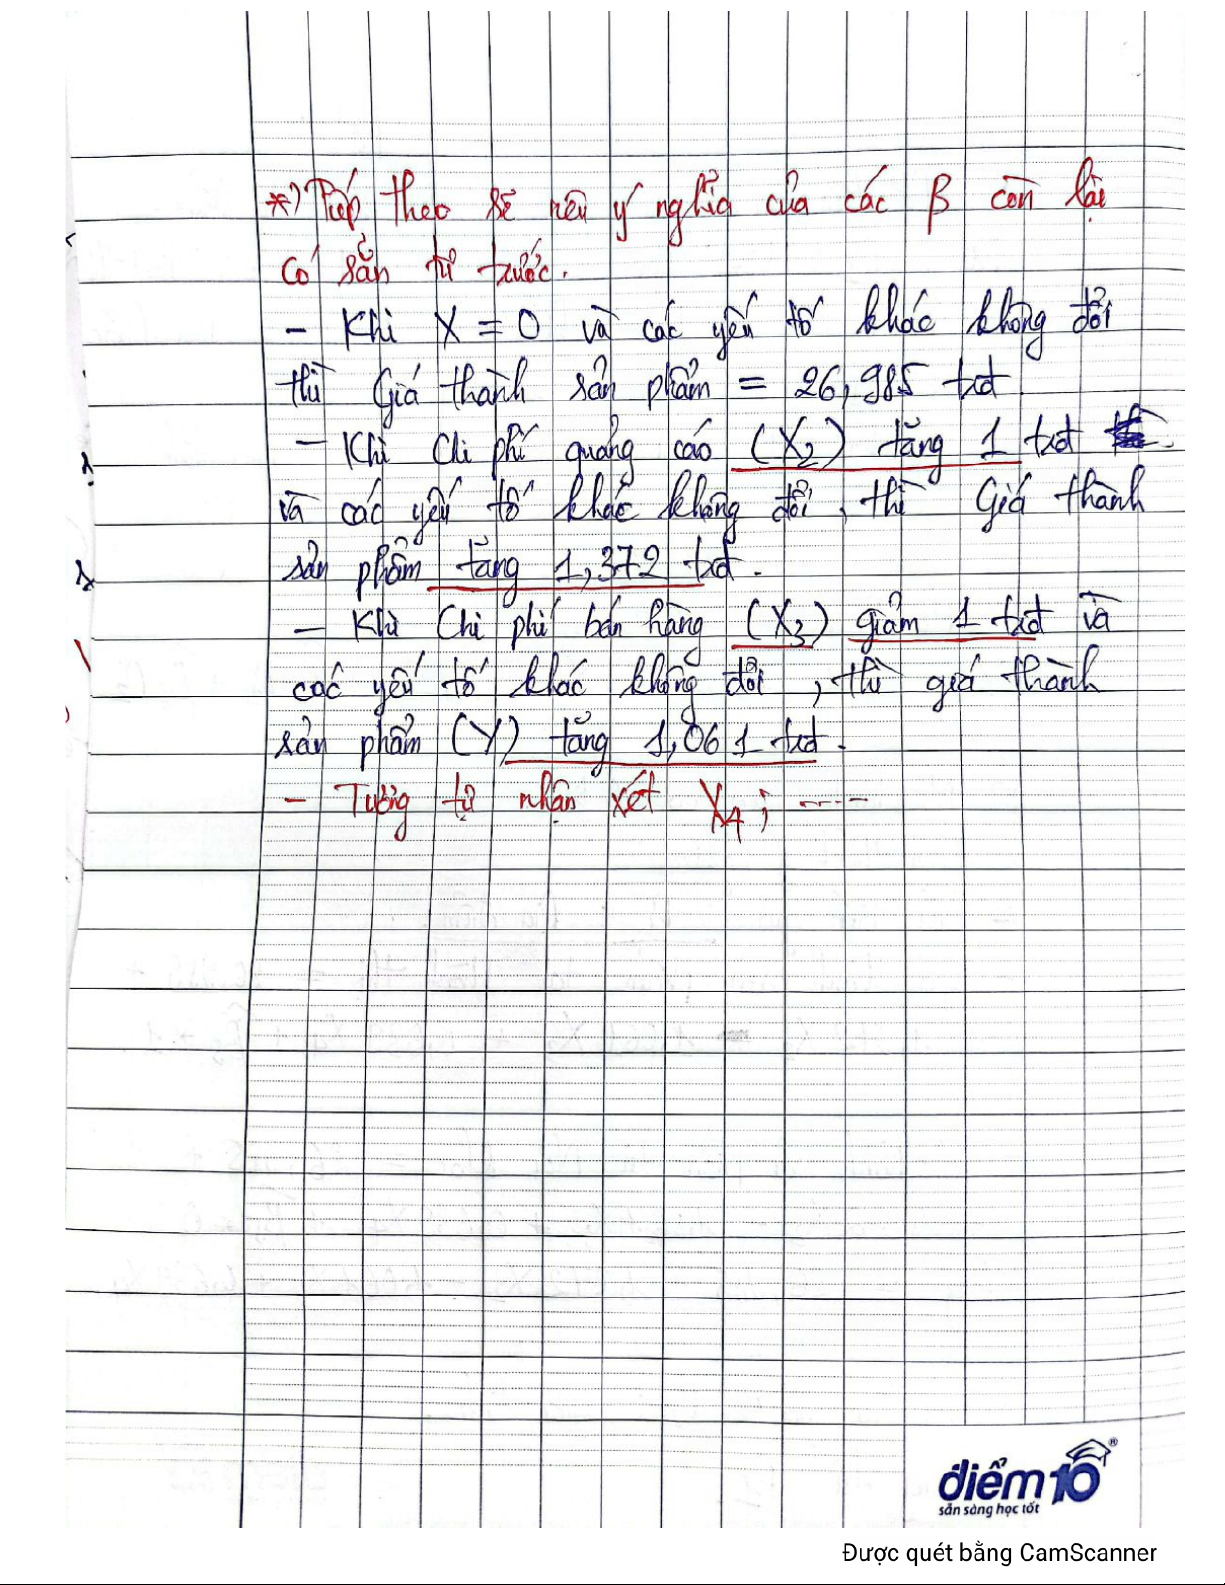 *) Tiếp theo sẽ nêu ý nghĩa của các β còn lại
có sẵn từ trước.
- Khi X = 0 và các yếu tố khác không đổi
thì Giá thành sản phẩm = 26,985 txđ
- Khi Chi phí quảng cáo (X2) tăng 1 txđ
và các yếu tố khác không đổi, thì Giá thành
sản phẩm tăng 1,372 txđ.
- Khi Chi phí bán hàng (X3) giảm 1 txđ và
các yếu tố khác không đổi, thì giá thành
sản phẩm (Y) tăng 1,061 txđ.
- Tương tự nhận xét X4; -----
điểm10
sẵn sàng học tốt
Được quét bằng CamScanner